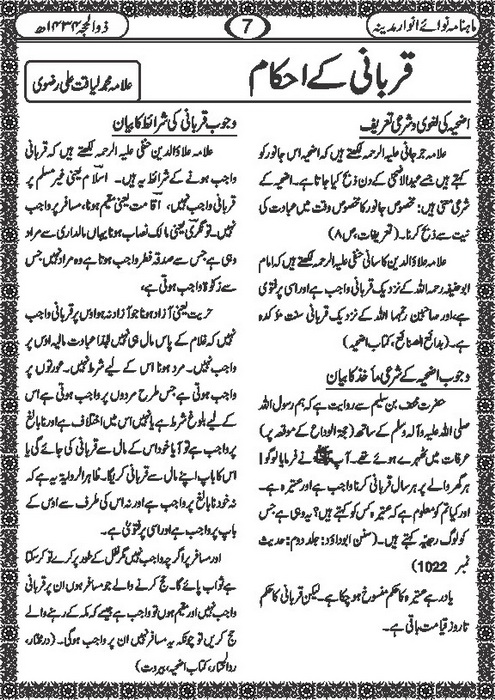 ماہنامہ نوائے انوار مدینہ
7
ذوالحجہ ۱۴۳۴ھ
قربانی کے احکام
علامہ محمد لیاقت علی رضوی
اضحیہ کی لغوی و شرعی تعریف
علامہ جرجانی علیہ الرحمہ لکھتے ہیں کہ اضحیہ اس جانور کو
کہتے ہیں جسے عیدالاضحی کے دن ذبح کیا جاتا ہے۔ اضحیہ کے
شرعی معنی ہیں: مخصوص جانور کا مخصوص وقت میں عبادت کی
نیت سے ذبح کرنا۔ (تعریفات، ص ۸)
علامہ علاؤالدین کاسانی حنفی علیہ الرحمہ لکھتے ہیں کہ امام
ابوحنیفہ رحمہ اللہ کے نزدیک قربانی واجب ہے اور اسی پر فتویٰ
ہے، اور صاحبین رحمہما اللہ کے نزدیک قربانی سنت مؤکدہ
ہے۔ (بدائع الصنائع، کتاب اضحیہ)
وجوب اضحیہ کے شرعی مأخذ کا بیان
حضرت مخنف بن سلیم سے روایت ہے کہ ہم رسول اللہ
صلی اللہ علیہ وآلہ وسلم کے ساتھ (حجۃ الوداع کے موقعہ پر)
عرفات میں ٹھہرے ہوئے تھے۔ آپ ﷺ نے فرمایا لوگو!
ہر گھر والے پر ہر سال قربانی کرنا واجب ہے اور عتیرہ ہے۔
اور کیا تم کو معلوم ہے کہ عتیرہ کس کو کہتے ہیں؟ یہ وہی ہے جس
کو لوگ رجبیہ کہتے ہیں۔ (سنن ابوداؤد: جلد دوم: حدیث
نمبر 1022)
یاد رہے عتیرہ کا حکم منسوخ ہو چکا ہے۔ لیکن قربانی کا حکم
تا روز قیامت باقی ہے۔
وجوب قربانی کی شرائط کا بیان
علامہ علاؤالدین حنفی علیہ الرحمہ لکھتے ہیں کہ قربانی
واجب ہونے کے شرائط یہ ہیں۔ اسلام یعنی غیر مسلم پر
قربانی واجب نہیں، اقامت یعنی مقیم ہونا، مسافر پر واجب
نہیں۔ تونگری یعنی مالک نصاب ہونا یہاں مالداری سے مراد
وہی ہے جس سے صدقہ فطر واجب ہوتا ہے وہ مراد نہیں جس
سے زکوٰۃ واجب ہوتی ہے،
حریت یعنی آزاد ہونا جو آزاد نہ ہو اوس پر قربانی واجب
نہیں کہ غلام کے پاس مال ہی نہیں لہٰذا عبادت مالیہ اوس پر
واجب نہیں۔ مرد ہونا اس کے لیے شرط نہیں۔ عورتوں پر
واجب ہوتی ہے جس طرح مردوں پر واجب ہوتی ہے اس
کے لیے بلوغ شرط ہے یا نہیں اس میں اختلاف ہے اور نابالغ
پر واجب ہے تو آیا خود اس کے مال سے قربانی کی جائے گی یا
اس کا باپ اپنے مال سے قربانی کریگا۔ ظاہر الروایۃ یہ ہے کہ
نہ خود نابالغ پر واجب ہے اور نہ اس کی طرف سے اوس کے
باپ پر واجب ہے اور اسی پر فتویٰ ہے۔
اور مسافر پر اگرچہ واجب نہیں مگر نفل کے طور پر کرے تو کرسکتا
ہے ثواب پائے گا۔ حج کرنے والے جو مسافر ہوں ان پر قربانی
واجب نہیں اور مقیم ہوں تو واجب ہے جیسے کہ مکہ کے رہنے والے
حج کریں تو چونکہ یہ مسافر نہیں ان پر واجب ہوگی۔ (درمختار،
ردالمحتار، کتاب اضحیہ، بیروت)